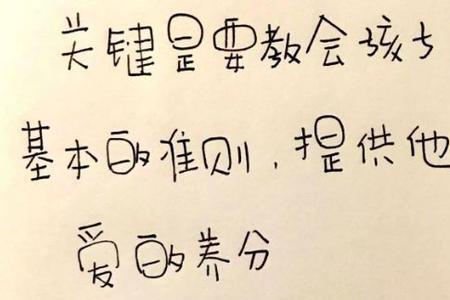 关键是要教会孩子
基本的准则，提供他
爱的养分